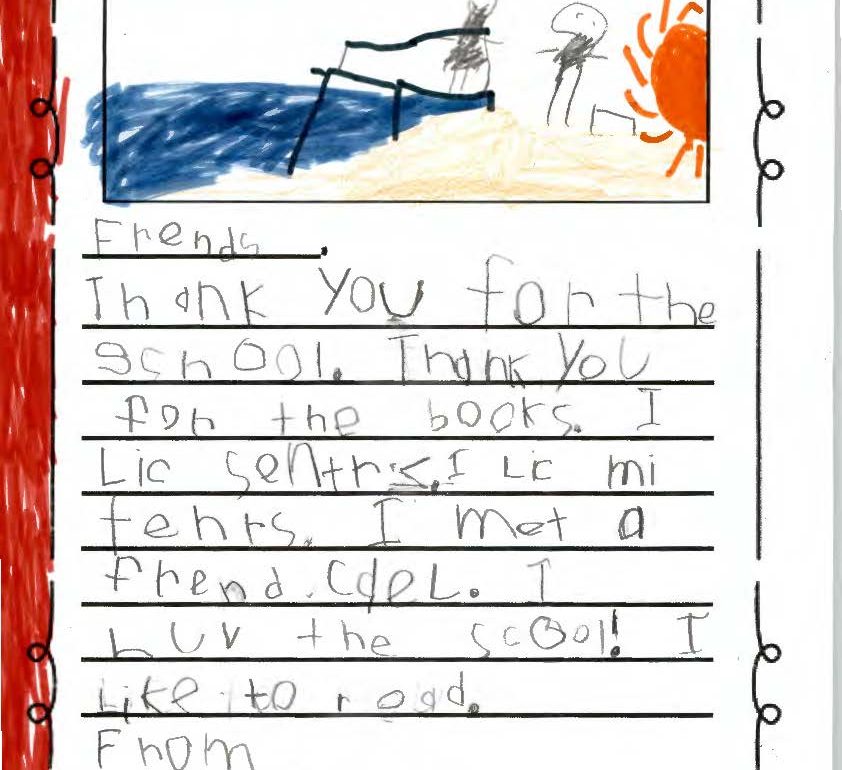 Frends.
Thank you for the
school. Thank you
for the books. I
Lic sentrs. I Lic mi
tehrs. I met a
frend. Cdel. I
Luv the scool! I
Like to read.
From